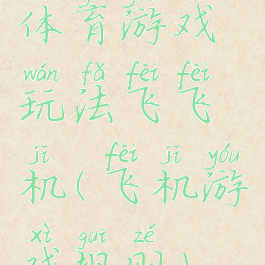 体育游戏
wán fǎ fēi fēi
玩法飞飞
jī fēi jī yóu
机(飞机游
xì guī zé
戏规则)